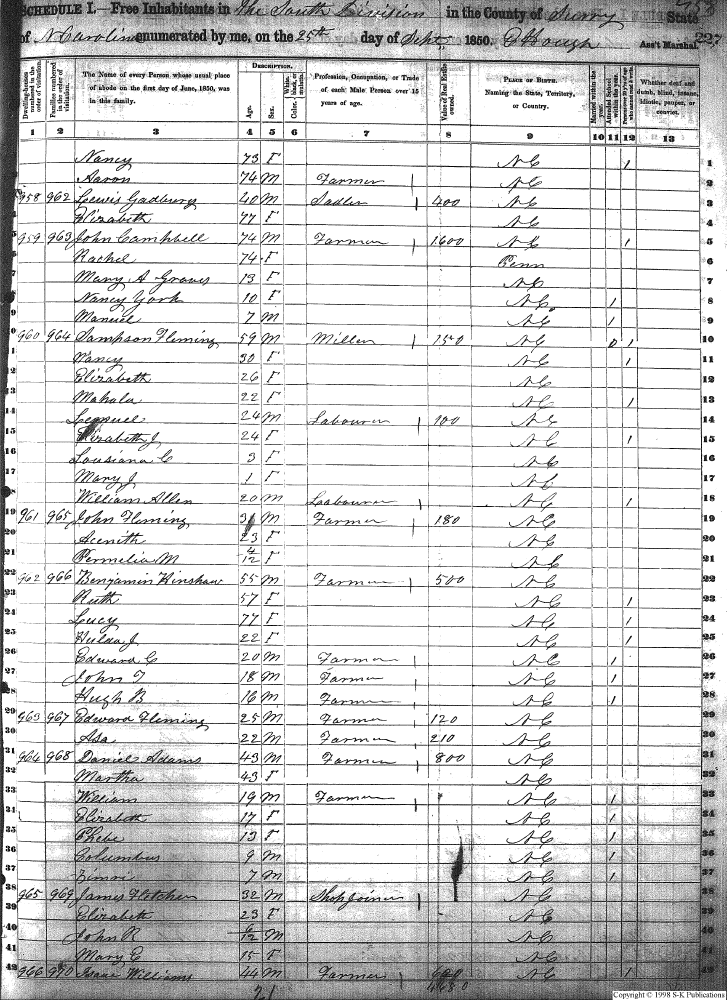 SCHEDULE I.—Free Inhabitants in The South Division in the County of Surry State
of N Carolina enumerated by me, on the 25th day of Sept, 1850. Ass't Marshal. 227
Dwelling-houses numbered in the order of visitation. Families numbered in the order of visitation. The Name of every Person whose usual place of abode on the first day of June, 1850, was in this family. DESCRIPTION. Age. Sex. Color, White, black, or mulatto. Profession, Occupation, or Trade of each Male Person over 15 years of age. Value of Real Estate owned. PLACE OF BIRTH. Naming the State, Territory, or Country. Married within the year. Attended School within the year. Whether deaf and dumb, blind, insane, idiotic, pauper, or convict.
1 2 3 4 5 6 7 8 9 10 11 12 13
Nancy 73 F NC 1 1
Aaron 74 M Farmer NC 2
3 958 962 Lewis Gadberry 40 M Sadler 400 NC 3
4 Elizabeth 77 F NC 4
5 959 963 John Campbell 74 M Farmer 1600 NC 1 5
6 Rachel 74 F Penn 6
7 Mary A Graves 13 F NC 7
8 Nancy York 10 F NC 1 8
9 Manuel 7 M NC 1 9
10 960 964 Sampson Fleming 59 M Miller 150 NC 0 1 10
11 Nancy 30 F NC 1 11
12 Elizabeth 26 F NC 12
13 Mahala 22 F NC 1 13
14 Lemuel 24 M Labourer 100 NC 14
15 Elizabeth J 24 F NC 1 15
16 Louisiana C 3 F NC 16
17 Mary J 1 F NC 17
18 William Allen 20 M Labourer NC 1 18
19 961 965 John Fleming M Farmer 180 NC 19
20 23 F NC 20
21 Permelia M 4/12 F NC 21
22 962 966 Benjamin Hinshaw 55 M Farmer 500 NC 22
23 Ruth 57 F NC 1 23
24 Lucy 77 F NC 1 24
25 Hulda J 22 F NC 1 25
26 Edward C 20 M Farmer NC 1 26
27 John T 18 M Farmer NC 1 27
28 Hugh B 16 M Farmer NC 1 28
29 963 967 Edward Fleming 25 M Farmer 120 NC 29
30 Asa 22 M Farmer 210 NC 30
31 964 968 Daniel Adams 43 M Farmer 800 NC 31
32 Martha 43 F NC 32
33 William 19 M Farmer NC 1 33
34 Elizabeth 17 F NC 1 34
35 Phebe 13 F NC 1 35
36 Columbus 9 M NC 1 36
37 Zimri 7 M NC 1 37
38 965 969 James Fletcher 32 M Shop Joiner NC 38
39 Elizabeth 23 F NC 39
40 John R 6/12 M NC 40
41 Mary C 15 F NC 41
42 966 970 Isaac Williams 44 M Farmer NC 1 42
Copyright © 1998 S-K Publications